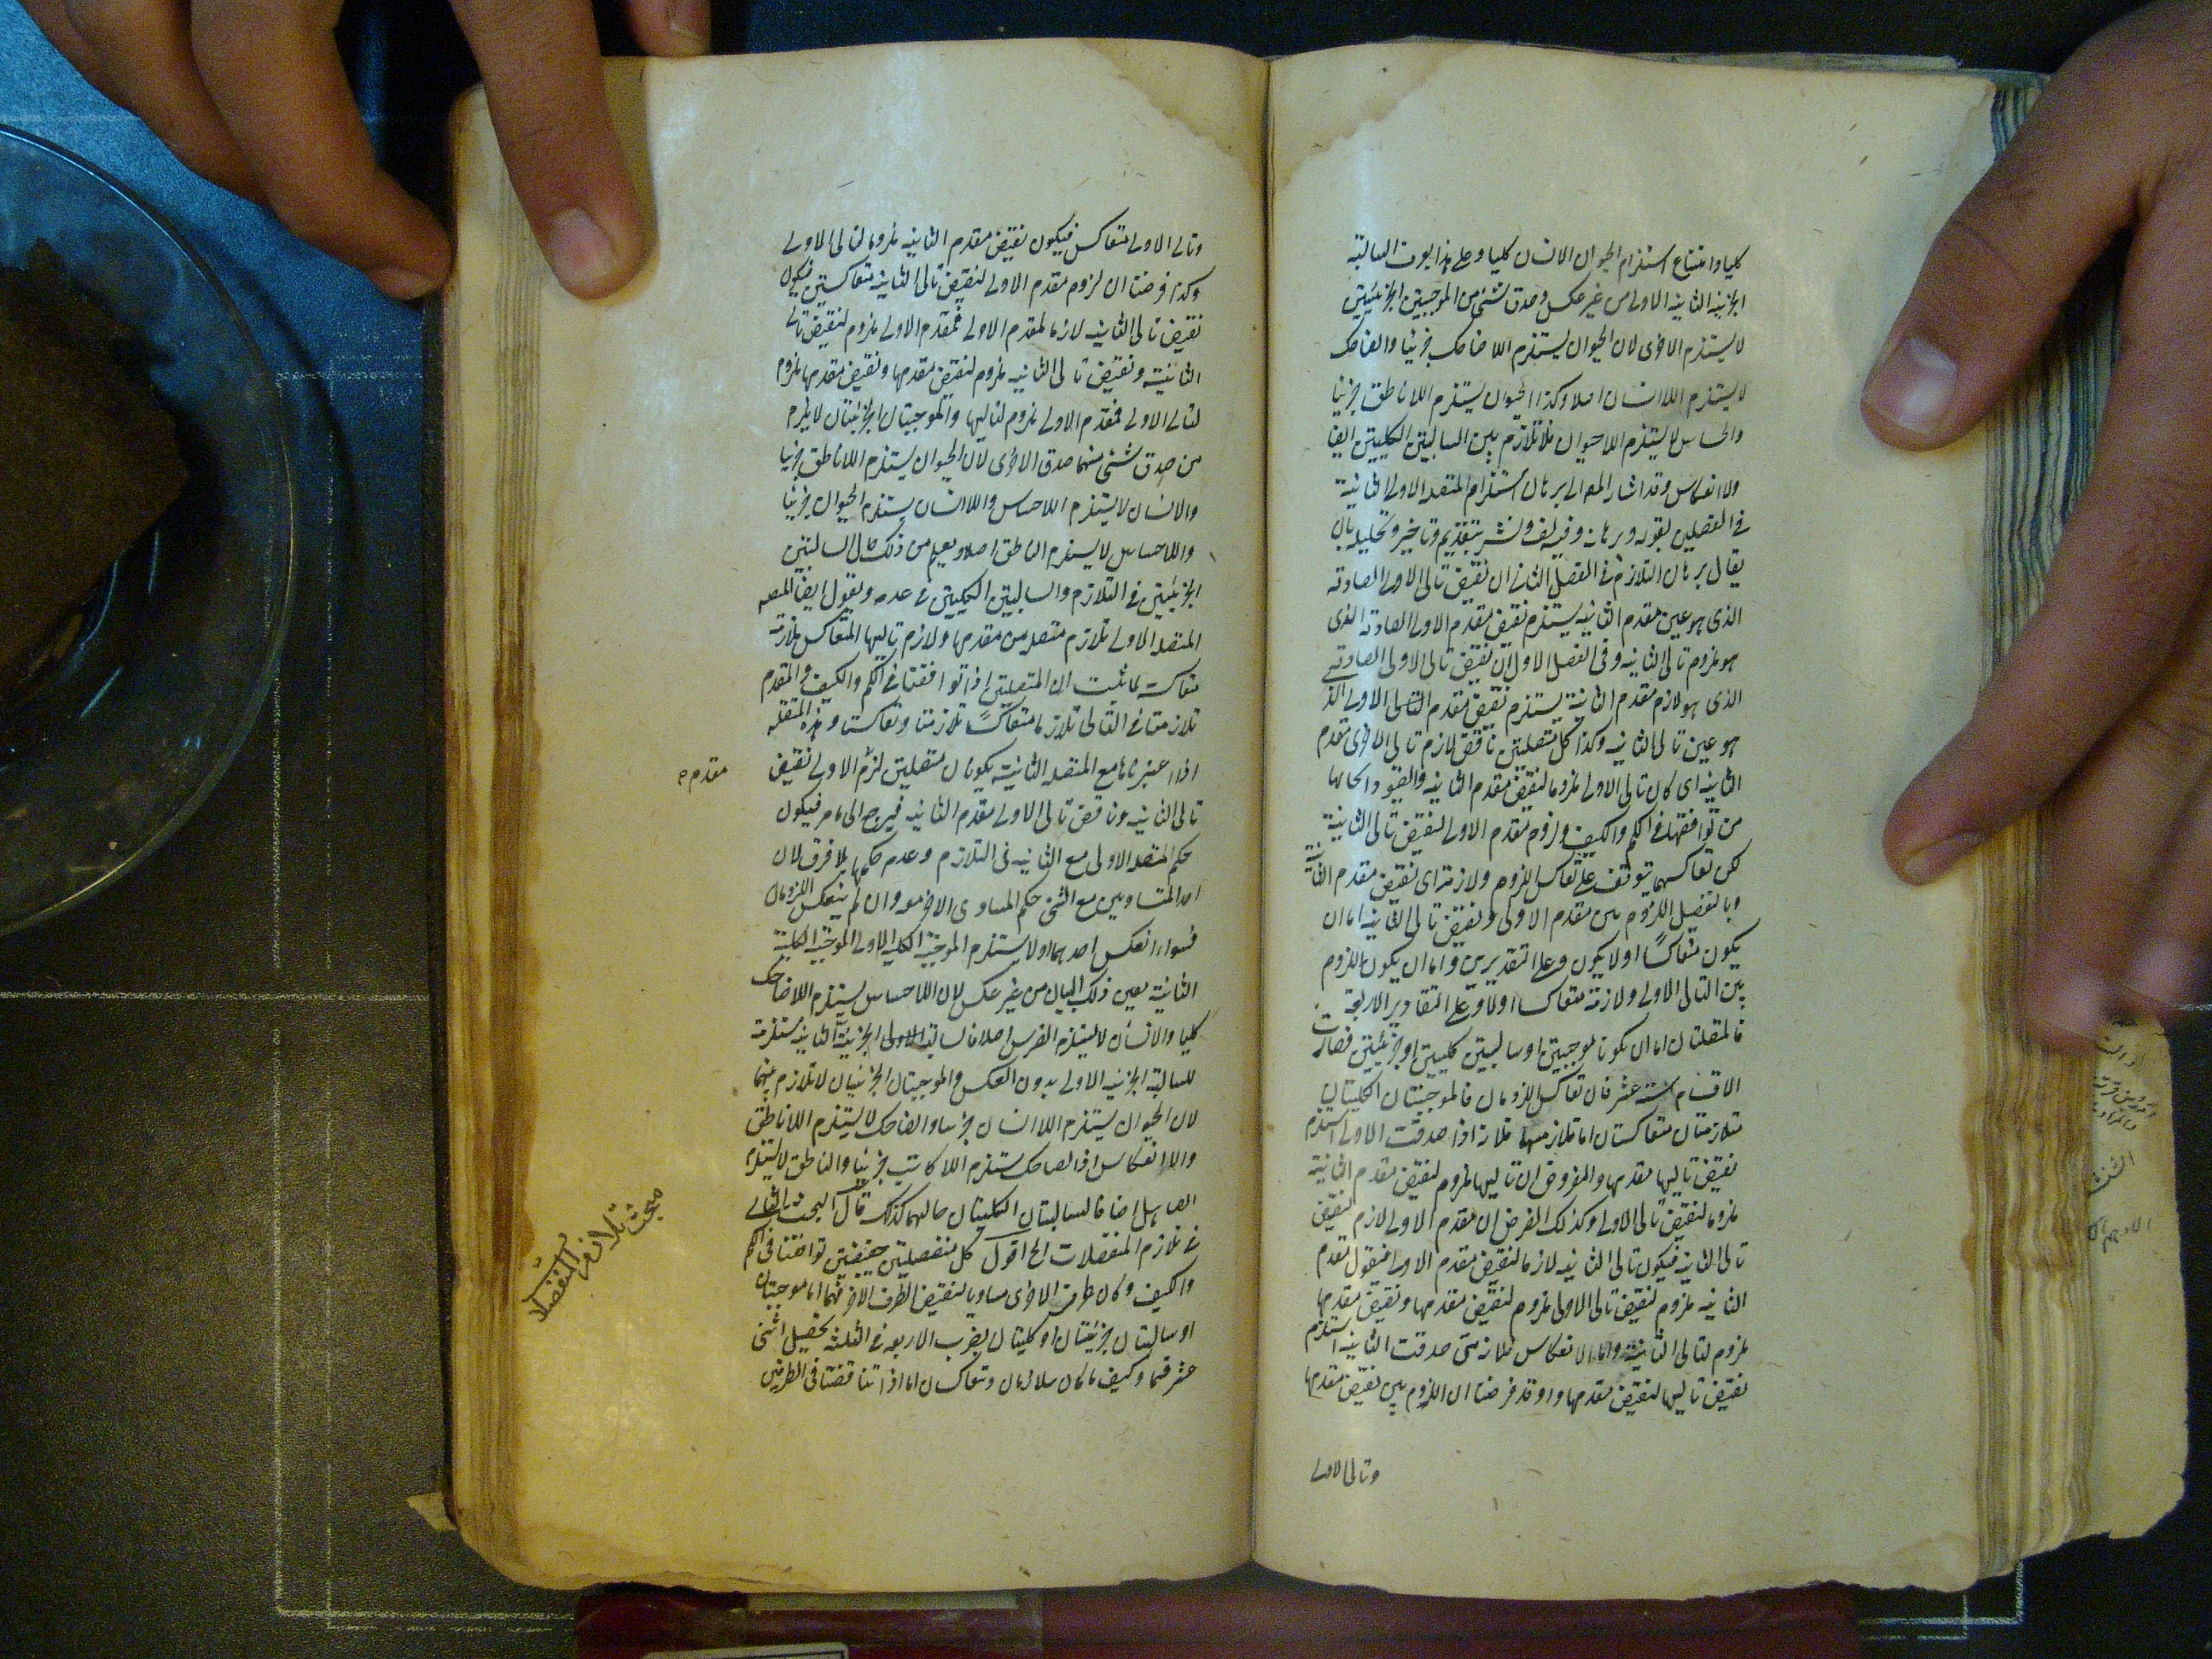 كليا وامتناع استلزام الحيوان الانسان كليا وعلى هذا يوت السالبة
الجزئية الثانية الاولى من غير عكس وصدق شئ من الموجبتين الجزئيتين
لا يستلزم الاخرى لان الحيوان يستلزم اللا ضاحك جزئيا والضاحك
لا يستلزم اللا انسان اصلا وكذا الحيوان يستلزم اللا ناطق جزئيا
والحساس لا يستلزم اللا حيوان فلا تلازم بين السالبتين الكليتين ايضا
ولا انعكاس وقد اشار المص الى برهان استلزام المتصلة الاولى الثانية
في الفصلين بقوله وبرهانه وفيه لف ونشر بتقديم وتاخير وتحليله بان
يقال برهان التلازم في الفصل الثاني ان نقيض تالى الاولى الصادقة
الذى هو عين مقدم الثانية يستلزم نقيض مقدم الاولى الصادقة الذى
هو ملزوم تالى الثانية وفى الفصل الاول ان نقيض تالى الاولى الصادقة
الذى هو لازم مقدم الثانية يستلزم نقيض مقدم التالى الاولى الذ
هو عين تالى الثانية وكذا كل متصلتين ناقض لازم تالى الاخرى مقدم
الثانية اى كان تالى الاولى ملزوما لنقيض مقدم الثانية والقيود بحالها
من توافقهما في الكم والكيف ولزوم مقدم الاولى لنقيض تالى الثانية
لكن تعاكسهما يتوقف على تعاكس اللزوم ولازمه اى نقيض مقدم الثانية
وبالتفصيل اللزوم بين مقدم الاولى ونقيض تالى الثانية اما ان
يكون متعاكسًا او لا يكون وعلى التقديرين واما ان يكون اللزوم
بين التالى الاولى ولازمه متعاكسا اولا وعلى التقادير الاربعة
فالمتصلتان اما ان يكونا موجبتين او سالبتين كليتين او جزئيتين فصارت
الاقسام ستة عشر فان تعاكس اللزومان فالموجبتان الكليتان
متلازمتان متعاكستان اما تلازمهما فلانه اذا صدقت الاولى استلزم
نقيض تاليها مقدمها والمفروض ان تاليها ملزوم لنقيض مقدم الثانية
ملزوما لنقيض تالى الاولى وكذلك الفرض ان مقدم الاولى لازم لنقيض
تالى الثانية فيكون تالى الثانية لازما لنقيض مقدم الاولى فنقول مقدم
الثانية ملزوم لنقيض تالى الاولى ملزوم لنقيض مقدمها ونقيض مقدمها
ملزوم لتالى الثانية واما الانعكاس فلانه متى صدقت الثانية استلزم
نقيض تاليها لنقيض مقدمها واو قد فرضنا ان اللزوم بين نقيض مقدمها
وتالى الاولى
وتالى الاولى متعاكس فيكون نقيض مقدم الثانية ملزوما لتالى الاولى
وكذا فرضنا ان لزوم مقدم الاولى لنقيض تالى الثانية متعاكستين فيكون
نقيض تالى الثانية لازما لمقدم الاولى فمقدم الاولى ملزوم لنقيض تالى
الثانية ونقيض تالى الثانية ملزوم لنقيض مقدمها ونقيض مقدمها ملزوم
لتالى الاولى فمقدم الاولى ملزوم لتاليها والموجبتان الجزئيتان لا يلزم
من صدق شئ منهما صدق الاخرى لان الحيوان يستلزم اللا ناطق جزئيا
والانسان لا يستلزم اللا حساس واللا انسان يستلزم الحيوان جزئيا
واللا حساس لا يستلزم الناطق اصلا ويعلم من ذلك حال السالبتين
الجزئيتين في التلازم والسالبتين الكليتين فى عدمه ونقول ايضا المتصلة
المتصلة الاولى تلازم متصلة من مقدمها ولازم تاليها المتعاكس ملازمة
متعاكسة لما ثبت ان المتصلتين اذا توافقتا في الكم والكيف والمقدم
تلازمتا في التالى تلازما متعاكسًا تلازمتا وتعاكستا وهذه المتصلة
اذا اعتبرناها مع المتصلة الثانية يكونان متصلتين لزم الاولى نقيض
مقدم
تالى الثانية وناقض تالى الاولى مقدم الثانية فيرجع الى ما مر فيكون
حكم المتصلة الاولى مع الثانية فى التلازم وعدمه حكمها بلا فرق لان
احد المتساويين مع الشئ حكم المساوى الاخر معه وان لم ينعكس اللزومان
فسواء انعكس احدهما اولا تستلزم الموجبة الكلية الاولى الموجبة الكلية
الثانية بعين ذلك البيان من غير عكس لان اللا حساس يستلزم اللا ضاحك
كليا والانسان لا يستلزم الفرس اصلا فالسالبة الاولى الجزئية الثانية مستلزمة
للسالبة الجزئية الاولى بدون العكس والموجبتان الجزئيتان لا تلازم بينهما
لان الحيوان يستلزم اللا انسان جزئيا والضاحك لا يستلزم اللا ناطق
ولا انعكاس اذ الضاحك يستلزم اللا كاتب جزئيا والناطق لا يستلزم
الصاهل اصلا فالسالبتان الكليتان حالهما كذلك قال البحث الثانى
فى تلازم المنفصلات الخ اقول كل منفصلتين حقيقتين توافقتا فى الكم
مبحث تلازم المنفصلا
والكيف وكان طرف الاخرى مساويا لنقيض الطرف الاخر فهما اما موجبتان
او سالبتان جزئيتان او كليتان بضرب الاربعة فى الثلثة يحصل اثنى
عشر قسما وكيف ما كان يتلازمان ويتعاكسان اما اذا تناقضتا فى الطرفين